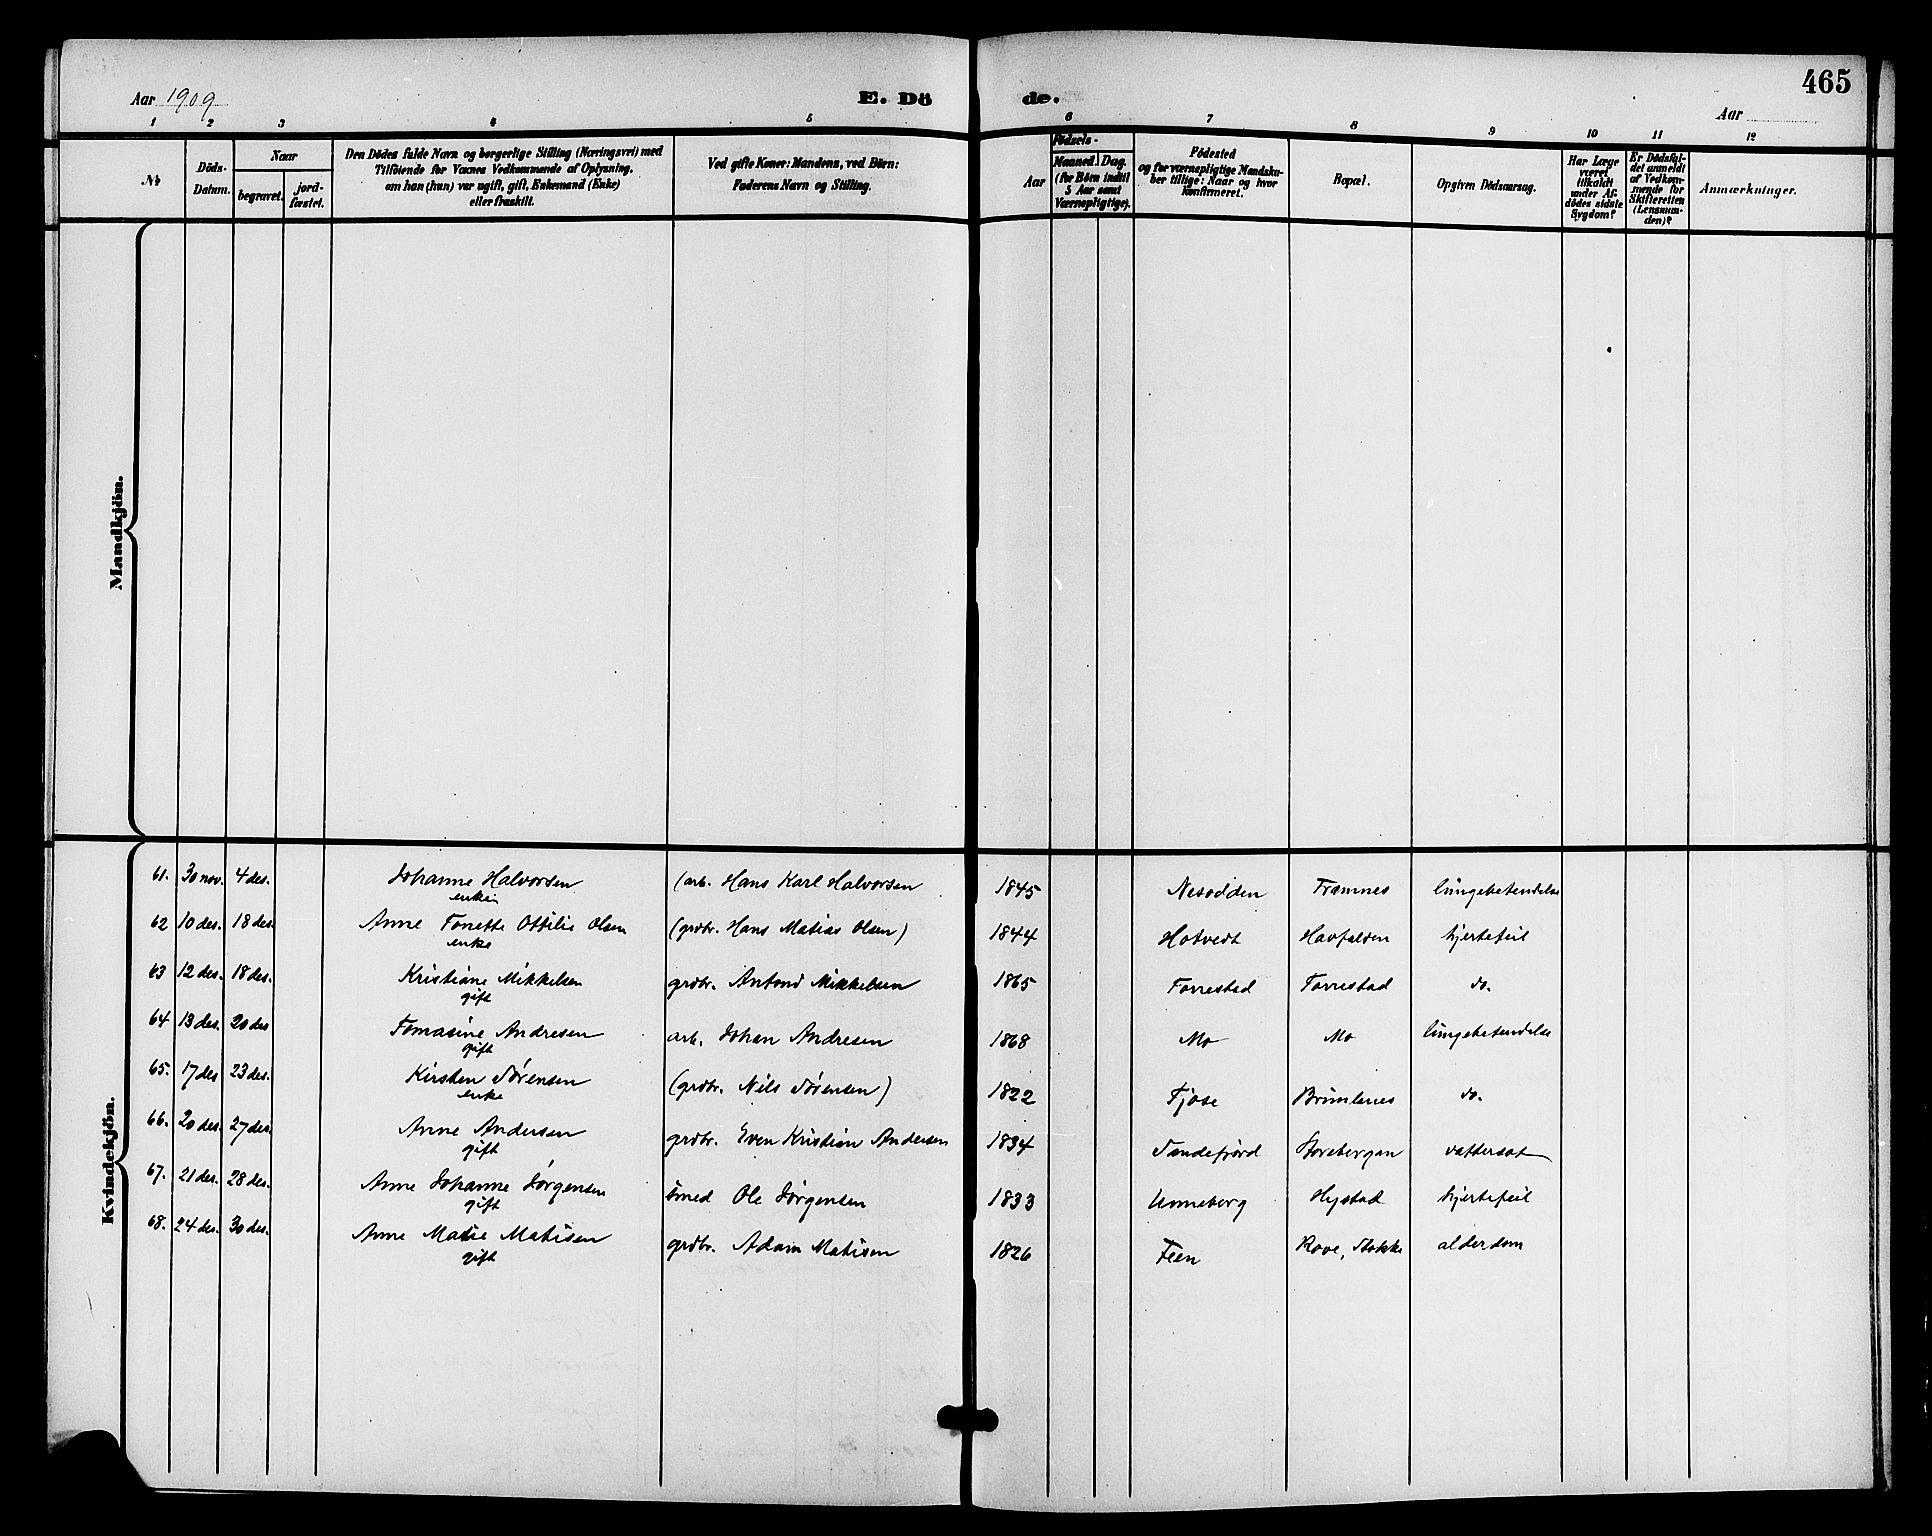 465
Aar 1909 E. Dö de. Aar
1 2 3 4 5 6 7 8 9 10 11 12
No
Döds-
Datum.
Naar
begravet.
jord-
fæstet.
Den Dödes fulde Navn og borgerlige Stilling (Næringsvei) med
Tilföiende for Voxnes Vedkommende af Oplysning,
om han (hun) var ugift, gift, Enkemand (Enke)
eller fraskilt.
Ved gifte Koner: Mandens, ved Börn:
Faderens Navn og Stilling.
Födsels-
Aar
Maaned. Dag.
(for Börn indtil
5 Aar samt
Værnepligtige).
Födested
og for værnepligtige Mandska-
ber tillige: Naar og hvor
konfirmeret.
Bopæl.
Opgiven Dödsaarsag.
Har Læge
været
tilkaldt
under Af-
dödes sidste
Sygdom?
Er Dödsfal-
det anmeldt
af Vedkom-
mende for
Skifteretten
(Lensman-
den)?
Anmærkninger.
Mandkjön.
Kvindekjön.
61. 30 nov. 4 des. Johanne Halvorsen (arb. Hans Karl Halvorsen 1845 Nesodden Framnes lungebetendelse
enke
62 10 des. 18 des. Anne Tonette Ottilie Olsen (grdbr. Hans Matias Olsen) 1844 Hotvedt Havfalden hjertefeil
enke
63 12 des. 18 des. Kristiane Mikkelsen grdbr. Antond Mikkelsen 1865 Torrestad Torrestad do.
gift
64 13 des. 20 des Tomasine Andresen arb. Johan Andresen 1868 Mo Mo lungebetendelse
gift
65. 17 des 23 des. Kirsten Sörensen (grdbr. Nils Sörensen) 1822 Tjose Brunlanes do.
enke
66. 20 des. 27 des. Anne Andersen grdbr. Even Kristian Andersen 1834 Sandefjord Storebergan vattersot
gift
67. 21 des. 28 des. Anne Johanne Jörgensen smed Ole Jörgensen 1833 Unneberg Hystad hjertefeil
gift
68. 24 des. 30 des. Anne Marie Matisen grdbr. Adam Matisen 1826 Feen Rove, Stokke alderdom
gift